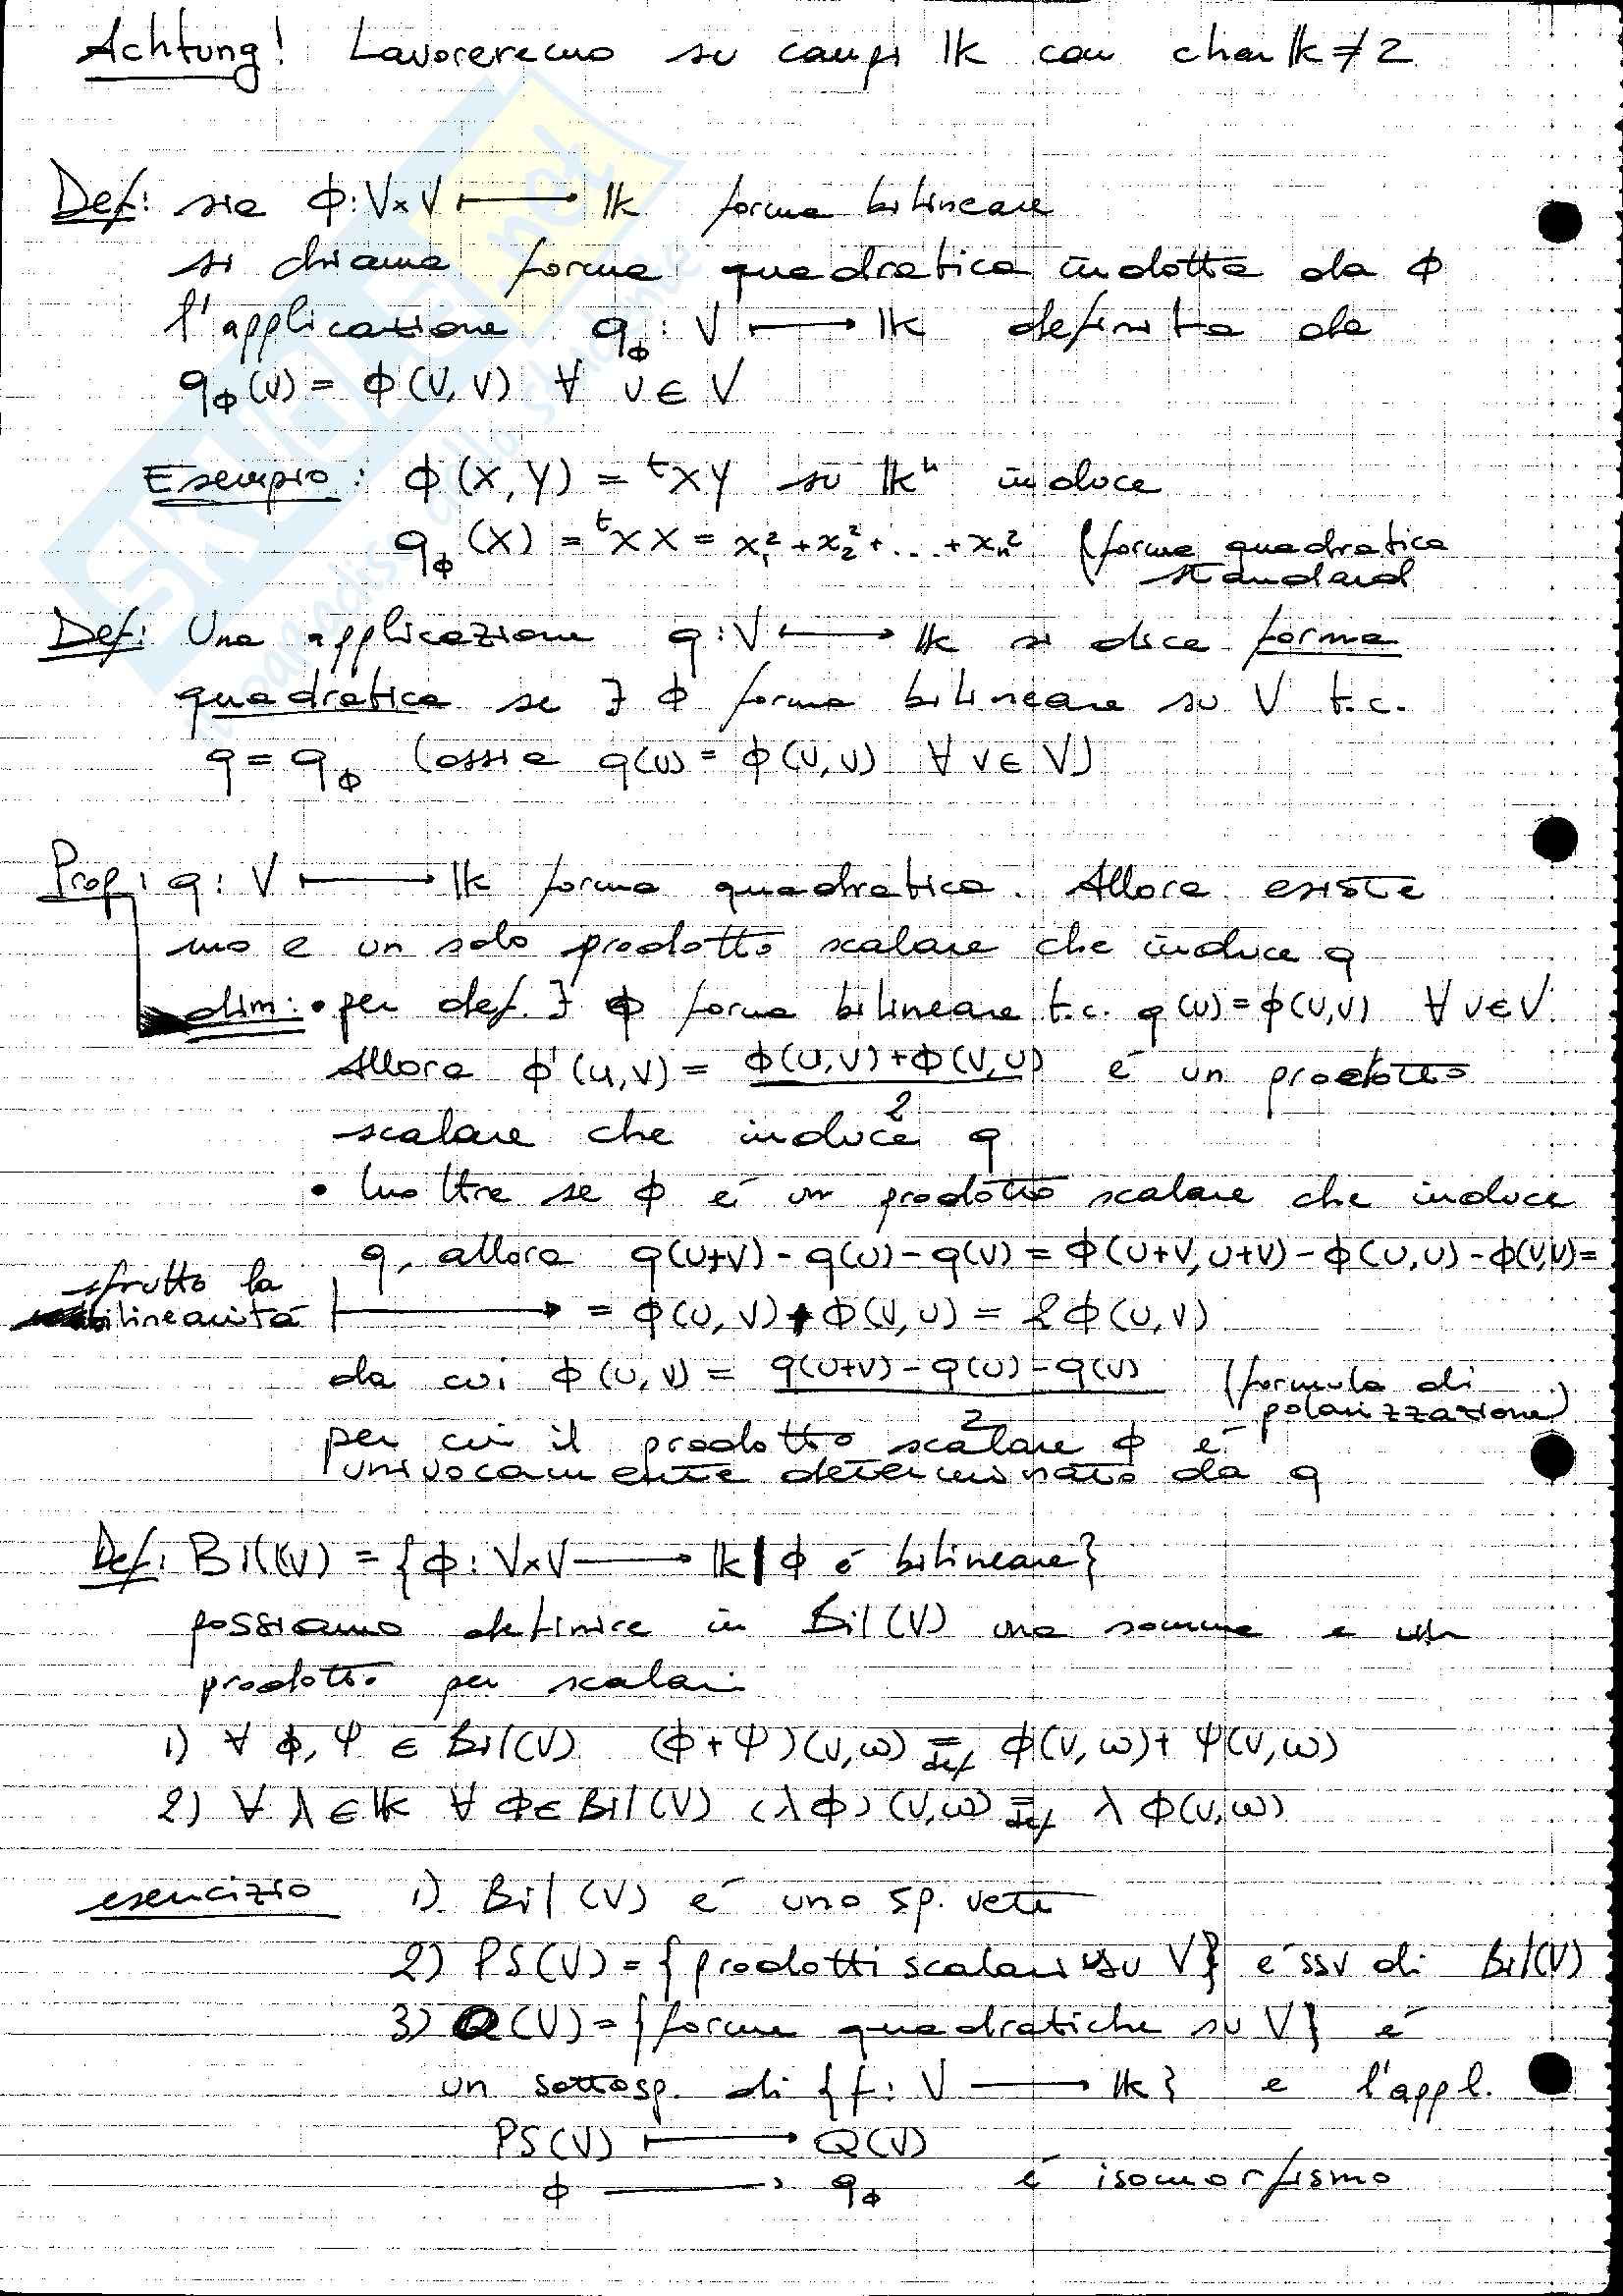 Achtung! Lavoreremo su campi 𝕜 con char 𝕜 ≠ 2
Def: sia ϕ: V×V ⟼ 𝕜 forma bilineare
si chiama forma quadratica indotta da ϕ
l'applicazione q_ϕ: V ⟼ 𝕜 definita da
q_ϕ(v) = ϕ(v,v) ∀ v ∈ V
Esempio: ϕ(X,Y) = ᵗXY su 𝕜ⁿ induce
q_ϕ(X) = ᵗXX = x₁² + x₂² + ... + xₙ² (forma quadratica
standard
Def: Una applicazione q: V ⟼ 𝕜 si dice forma
quadratica se ∃ ϕ forma bilineare su V t.c.
q = q_ϕ (ossia q(v) = ϕ(v,v) ∀ v ∈ V)
Prop: q: V ⟼ 𝕜 forma quadratica. Allora esiste
uno e un solo prodotto scalare che induce q
dim: • per def. ∃ ϕ forma bilineare t.c. q(v) = ϕ(v,v) ∀ v ∈ V.
Allora ϕ'(u,v) = (ϕ(u,v) + ϕ(v,u))/2 é un prodotto
scalare che induce q
• Inoltre se ϕ é un prodotto scalare che induce
q, allora q(u+v) - q(u) - q(v) = ϕ(u+v, u+v) - ϕ(u,u) - ϕ(v,v) =
sfrutto la
bilinearitá ⟼ = ϕ(u,v) + ϕ(v,u) = 2ϕ(u,v)
da cui ϕ(u,v) = (q(u+v) - q(u) - q(v))/2 (formula di
polarizzazione)
per cui il prodotto scalare ϕ é
univocamente determinato da q
Def: Bil(V) = {ϕ: V×V ⟶ 𝕜 | ϕ é bilineare}
possiamo definire in Bil(V) una somma e un
prodotto per scalari
1) ∀ ϕ, ψ ∈ Bil(V) (ϕ+ψ)(v,ω) =def ϕ(v,ω) + ψ(v,ω)
2) ∀ λ ∈ 𝕜 ∀ ϕ ∈ Bil(V) (λϕ)(v,ω) =def λϕ(v,ω)
esercizio 1) Bil(V) é uno sp. vett
2) PS(V) = {prodotti scalari su V} é ssv di Bil(V)
3) Q(V) = {forme quadratiche su V} é
un sottosp. di {f: V ⟶ 𝕜} e l'appl.
PS(V) ⟼ Q(V)
ϕ ⟶ q_ϕ é isomorfismo